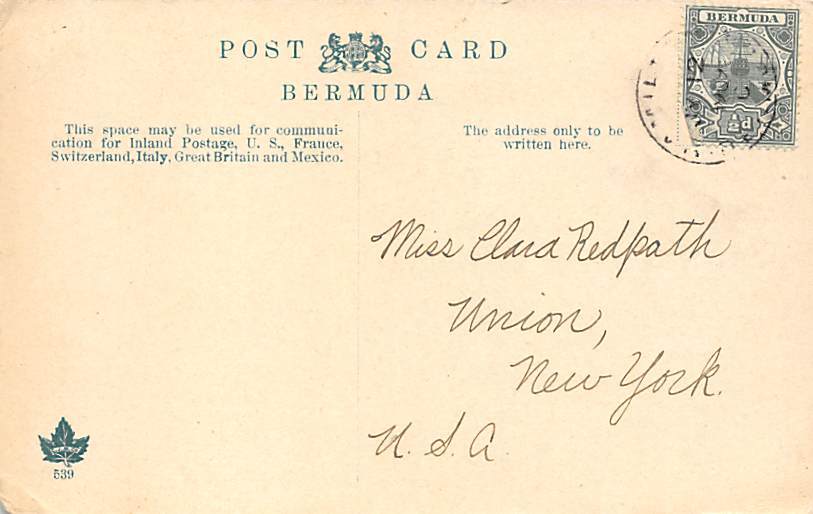 POST CARD
BERMUDA
This space may be used for communi-
cation for Inland Postage, U. S., France,
Switzerland, Italy, Great Britain and Mexico.
The address only to be
written here.
BERMUDA
½d
Miss Clara Redpath
Union,
New York.
U. S. A.
539